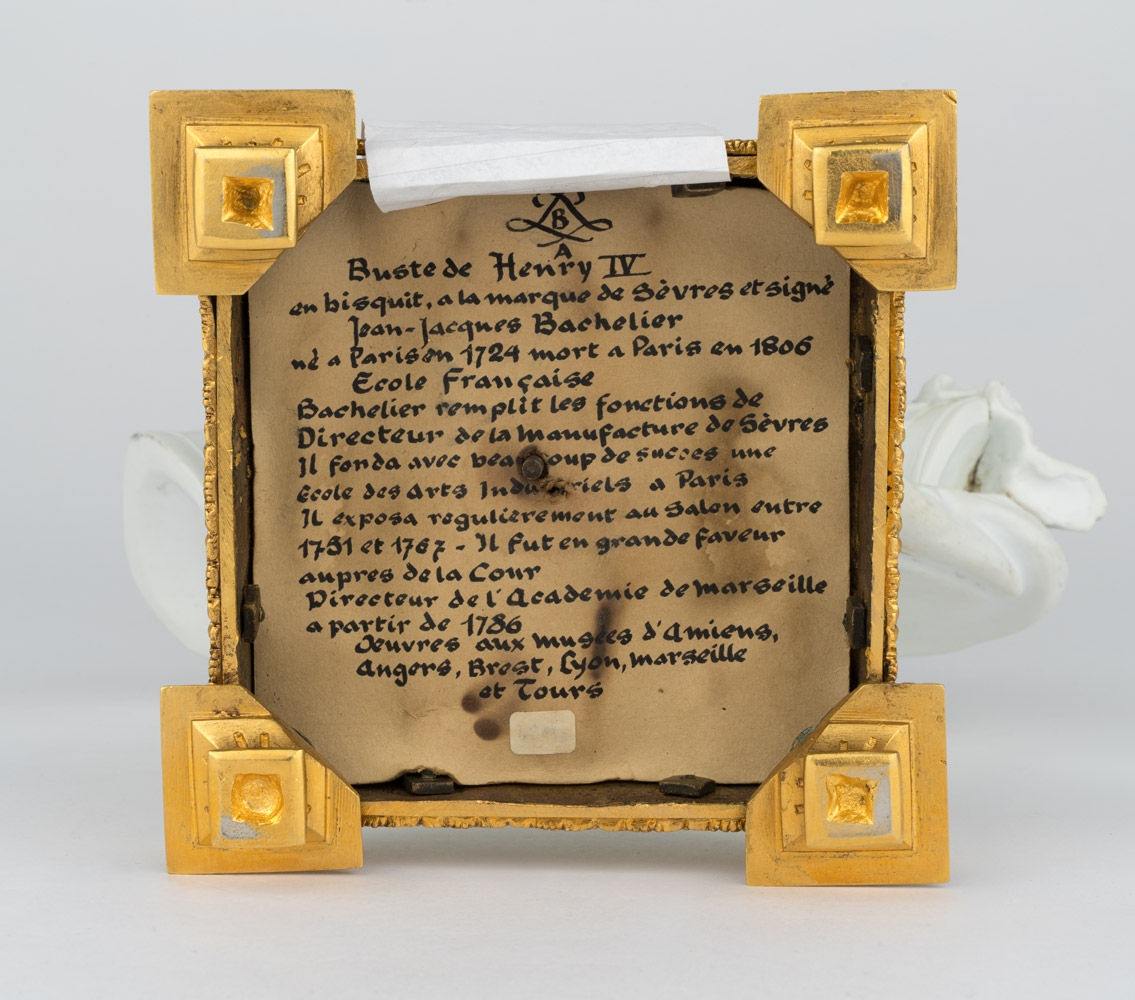 B
A
Buste de Henry IV
en bisquit, a la marque de Sèvres et signé
Jean-Jacques Bachelier
né a Paris en 1724 mort a Paris en 1806
Ecole Française
Bachelier remplit les fonctions de
Directeur de la Manufacture de Sèvres
Il fonda avec beaucoup de succes une
école des Arts Industriels a Paris
Il exposa regulièrement au Salon entre
1751 et 1767 - Il fut en grande faveur
aupres de la Cour
Directeur de l'Academie de marseille
a partir de 1786
Oeuvres aux musées d'Amiens,
Angers, Brest, Lyon, marseille
et Tours